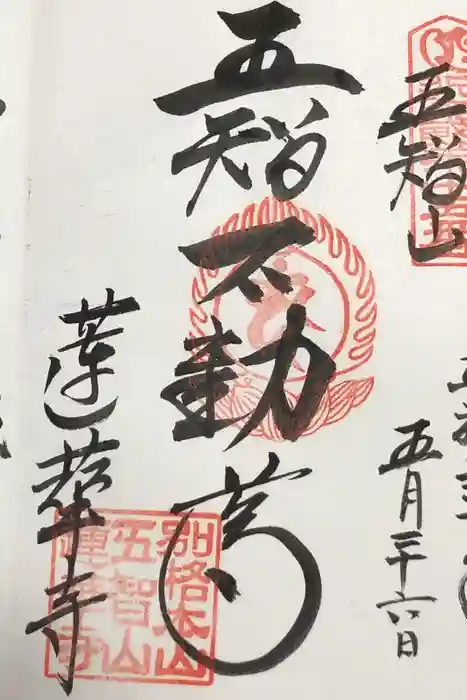 五智山
五月二十六日
五智不動尊
蓮華寺
別格本山
五智山
蓮華寺